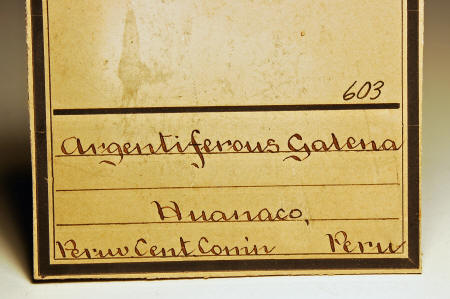 603
Argentiferous Galena
Huanaco,
Peruv. Cent. Comm Peru